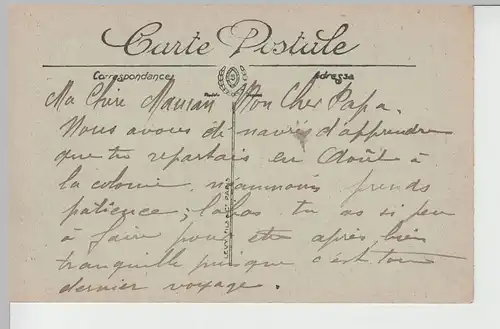 Carte Postale
Correspondance Adresse
Ma Chère Maman Mon Cher Papa.
Nous avons été navrés d'apprendre
que tu repartais en Août à
la colonie néanmoins prends
patience, là bas tu as si peu
à faire pour être après bien
tranquille puisque c'est ton
dernier voyage.
LEVY FILS & Cie PARIS